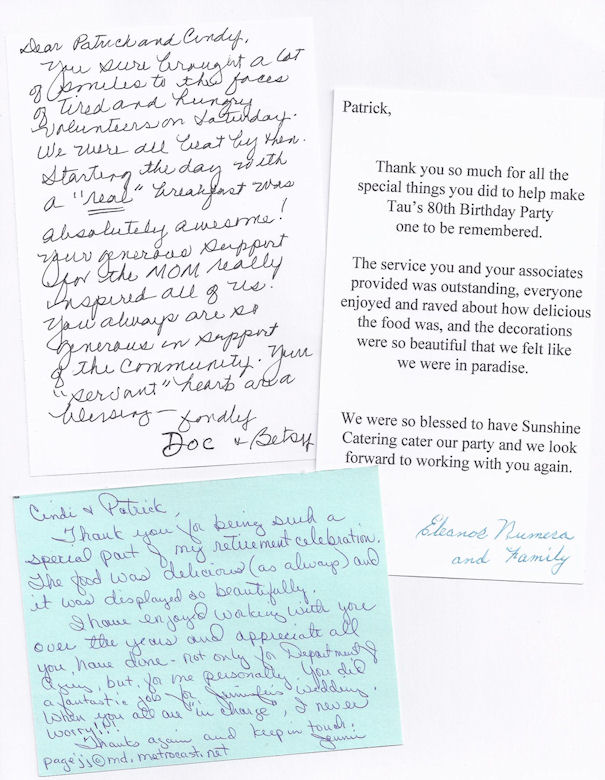 Dear Patrick and Cindy,
You sure brought a lot
of smiles to the faces
of tired and hungry
volunteers on Saturday.
We were all beat by then.
Starting the day with
a "real" breakfast was
absolutely awesome!
Your generous support
for the MOM really
inspired all of us.
You always are so
generous in support
of the community. Your
"servant" heart are a
blessing – fondly
Doc & Betsy
Patrick,
Thank you so much for all the
special things you did to help make
Tau's 80th Birthday Party
one to be remembered.
The service you and your associates
provided was outstanding, everyone
enjoyed and raved about how delicious
the food was, and the decorations
were so beautiful that we felt like
we were in paradise.
We were so blessed to have Sunshine
Catering cater our party and we look
forward to working with you again.
Eleanor
and Family
Cindi & Patrick,
Thank you for being such a
special part of my retirement celebration.
The food was delicious (as always) and
it was displayed so beautifully.
I have enjoyed working with you
over the years and appreciate all
you have done - not only for Department of
Aging, but for me personally. You did
a fantastic job for Jennifer's wedding.
When you all are "in charge", I never
worry!!!
Thanks again and keep in touch.
pagejj@md.metrocast.net